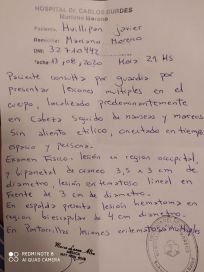 HOSPITAL Dr. CARLOS DURDES
Mariano Moreno
Paciente: Huillipan Javier
Domicilio: Mariano Moreno
DNI: 32710442
Fecha: 13/08/2020 Hora 21 HS
Paciente consulta por guardia por
presentar lesiones multiples en el
cuerpo, localizado predominantemente
en cabeza seguido de nauseas y mareos
Sin aliento etilico, orientado en tiempo
espacio y persona.
Examen Fisico: lesión en region occipital,
y biparietal de craneo 3,5 x 3 cm de
diametro, lesión eritematoso lineal en
frente de 3 cm de diametro.
En espalda presenta lesión hematoma en
region biescapular de 4 cm diametro.
En Pantorrillas lesiones eritematosa multiples
REDMI NOTE 8
AI QUAD CAMERA